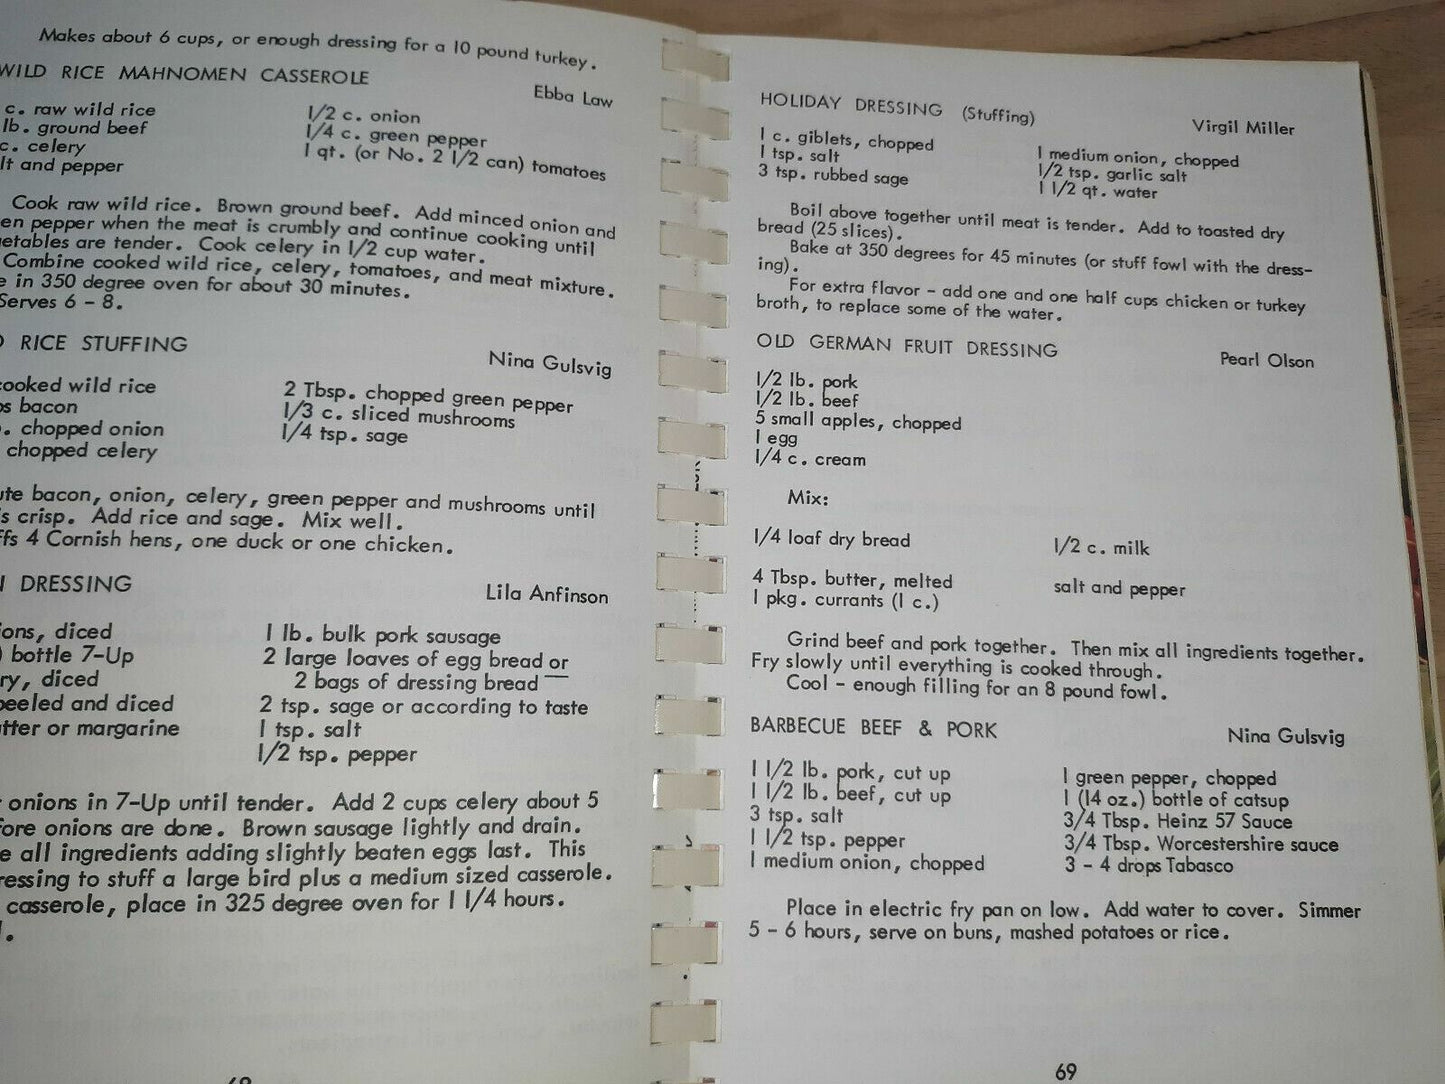 Makes about 6 cups, or enough dressing for a 10 pound turkey.
WILD RICE MAHNOMEN CASSEROLE
Ebba Law
c. raw wild rice
lb. ground beef
c. celery
lt and pepper
1/2 c. onion
1/4 c. green pepper
1 qt. (or No. 2 1/2 can) tomatoes
Cook raw wild rice. Brown ground beef. Add minced onion and
en pepper when the meat is crumbly and continue cooking until
getables are tender. Cook celery in 1/2 cup water.
Combine cooked wild rice, celery, tomatoes, and meat mixture.
e in 350 degree oven for about 30 minutes.
Serves 6 - 8.
RICE STUFFING
Nina Gulsvig
cooked wild rice
ps bacon
. chopped onion
chopped celery
2 Tbsp. chopped green pepper
1/3 c. sliced mushrooms
1/4 tsp. sage
ute bacon, onion, celery, green pepper and mushrooms until
is crisp. Add rice and sage. Mix well.
ffs 4 Cornish hens, one duck or one chicken.
DRESSING
Lila Anfinson
ions, diced
) bottle 7-Up
ry, diced
peeled and diced
tter or margarine
1 lb. bulk pork sausage
2 large loaves of egg bread or
2 bags of dressing bread
2 tsp. sage or according to taste
1 tsp. salt
1/2 tsp. pepper
onions in 7-Up until tender. Add 2 cups celery about 5
fore onions are done. Brown sausage lightly and drain.
e all ingredients adding slightly beaten eggs last. This
ressing to stuff a large bird plus a medium sized casserole.
casserole, place in 325 degree oven for 1 1/4 hours.
HOLIDAY DRESSING (Stuffing)
Virgil Miller
1 c. giblets, chopped
1 tsp. salt
3 tsp. rubbed sage
1 medium onion, chopped
1/2 tsp. garlic salt
1 1/2 qt. water
Boil above together until meat is tender. Add to toasted dry
bread (25 slices).
Bake at 350 degrees for 45 minutes (or stuff fowl with the dress-
ing).
For extra flavor - add one and one half cups chicken or turkey
broth, to replace some of the water.
OLD GERMAN FRUIT DRESSING
Pearl Olson
1/2 lb. pork
1/2 lb. beef
5 small apples, chopped
1 egg
1/4 c. cream
Mix:
1/4 loaf dry bread
1/2 c. milk
4 Tbsp. butter, melted
salt and pepper
1 pkg. currants (1 c.)
Grind beef and pork together. Then mix all ingredients together.
Fry slowly until everything is cooked through.
Cool - enough filling for an 8 pound fowl.
BARBECUE BEEF & PORK
Nina Gulsvig
1 1/2 lb. pork, cut up
1 1/2 lb. beef, cut up
3 tsp. salt
1 1/2 tsp. pepper
1 medium onion, chopped
1 green pepper, chopped
1 (14 oz.) bottle of catsup
3/4 Tbsp. Heinz 57 Sauce
3/4 Tbsp. Worcestershire sauce
3 - 4 drops Tabasco
Place in electric fry pan on low. Add water to cover. Simmer
5 - 6 hours, serve on buns, mashed potatoes or rice.
69